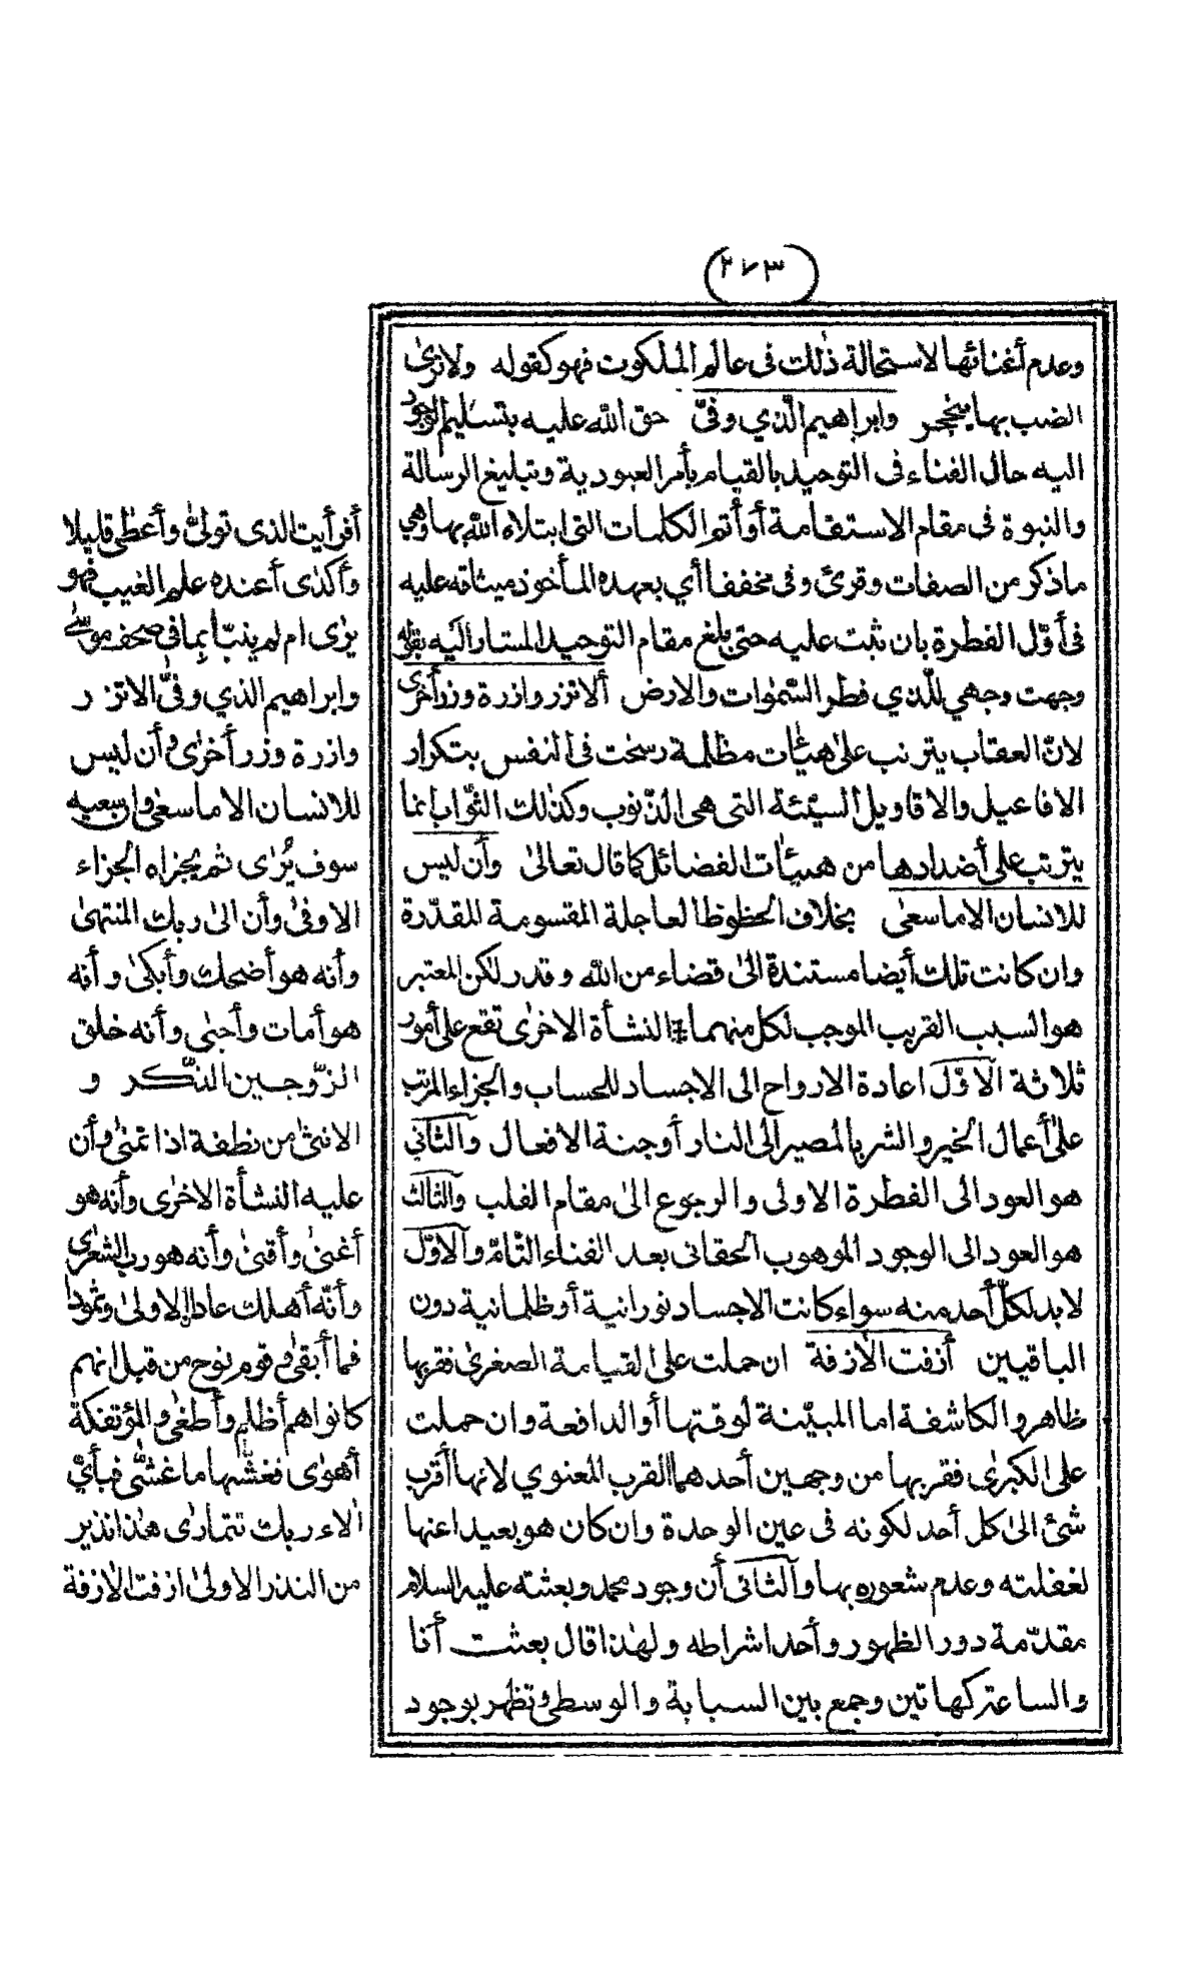 (٢٧٣)
وعدم أغنائها لاستحالة ذٰلك فى عالم الملكوت فهو كقوله ولا ترىٰ
الضب بها ينجحر وابراهيم الّذي وفىّ حق الله عليه بتسليم الوجود
اليه حال الفناء فى التوحيد بالقيام بأمر العبودية وتبليغ الرسالة
والنبوة فى مقام الاستقامة أو أتم الكلمات التى ابتلاه الله بها وهي
ما ذكر من الصفات وقرئ وفى مخففا أي بعهده المأخوذ ميثاقه عليه
فى أوّل الفطرة بان ثبت عليه حتى بلغ مقام التوحيد المشار اليه بقوله
وجهت وجهي للّذي فطر السّمٰوات والارض ألا تزر وازرة وزر أخرى
لانّ العقاب يترتب علىٰ هيٰات مظلمة رسخت فى النفس بتكرار
الافاعيل والاقاويل السيّئة التى هى الذّنوب وكذٰلك الثّواب انما
يترتب علٰى أضدادها من هيئات الفضائل كما قال تعالىٰ وأن ليس
للانسان الا ما سعىٰ بخلاف الحظوظ العاجلة المقسومة المقدّرة
وان كانت تلك أيضا مستندة الىٰ قضاء من الله وقدر لكن المعتبر
هو السبب القريب الموجب لكل منهما ⁑ النشأة الاخرٰى تقع على أمور
ثلاثة الاوّل اعادة الارواح الى الاجساد للحساب والجزاء المرتب
علىٰ أعمال الخير والشر بالمصير الى النار أو جنة الافعال والثانى
هو العود الى الفطرة الاولى والرجوع الىٰ مقام القلب والثالث
هو العود الى الوجود الموهوب الحقانى بعد الفناء التّامّ والاوّل
لا بد لكلّ أحد منه سواء كانت الاجساد نورانية أو ظلمانية دون
الباقيين أزفت الاٰزفة ان حملت على القيامة الصغرىٰ فقربها
ظاهر والكاشفة اما المبيّنة لوقتها أو الدافعة وان حملت
على الكبرٰى فقربها من وجهين أحدهما القرب المعنوي لانها أقرب
شئ الىٰ كل أحد لكونه فى عين الوحدة وان كان هو بعيدا عنها
لغفلته وعدم شعوره بها والثانى أن وجود محمد وبعثته عليه السلام
مقدّمة دور الظهور وأحد اشراطه ولهٰذا قال بعثت أنا
والساعة كهاتين وجمع بين السبابة والوسطىٰ تظهر بوجود
أفرأيت الذى تولىّٰ وأعطٰى قليلا
وأكدٰى أعنده علم الغيب فهو
يرٰى ام لم ينبّأ بما فى صحف موسىٰ
وابراهيم الذي وفىّٰ الا تزر
وازرة وزر أخرٰى وأن ليس
للانسان الا ما سعىٰ وان سعيه
سوف يُرٰى ثم يجزاه الجزاء
الاوفىٰ وأن الىٰ ربك المنتهىٰ
وأنه هو أضحك وأبكىٰ وأنه
هو أمات وأحيٰى وأنه خلق
الزّوجين الذّكر و
الانثىٰ من نطفة اذا تمنىٰ وأن
عليه النشأة الاخرٰى وأنه هو
أغنىٰ وأقنىٰ وأنه هو رب الشعرٰى
وأنّه أهلك عادا الاولىٰ وثمودا
فما أبقىٰ وقوم نوح من قبل انهم
كانوا هم أظلم وأطغىٰ والمؤتفكة
أهوٰى فغشّٰها ما غشّٰى فبأيّ
اٰلاء ربك تتمارٰى هٰذا نذير
من النذر الاولىٰ ازفت الاٰزفة